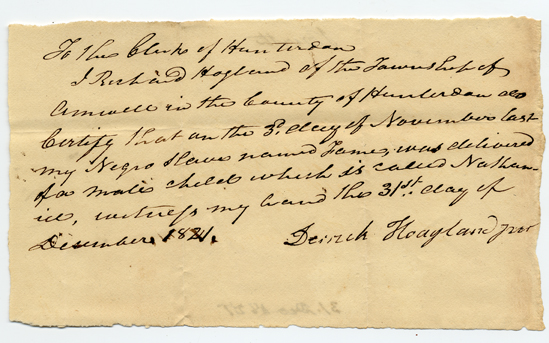 To the Clerk of Hunterdon
I Richard Hogland of the Township of
Amwell in the County of Hunterdon do
Certify that on the 3d. day of November last
my Negro Slave named Fame, was delivered
of a male child which is called Nathan-
iel, witness my hand the 31st. day of
Desember 1821.
Derrick Hoagland